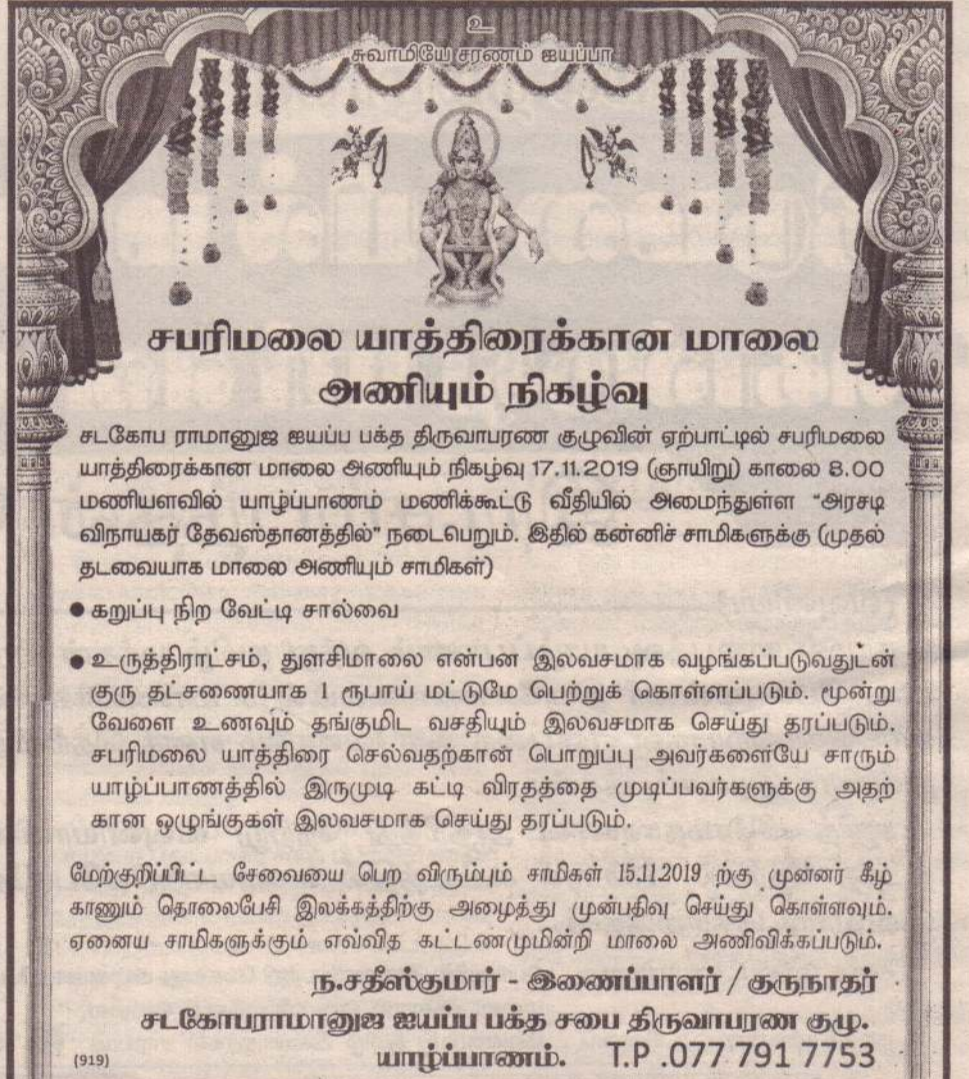 உ
சுவாமியே சரணம் ஐயப்பா
சபரிமலை யாத்திரைக்கான மாலை
அணியும் நிகழ்வு
சடகோப ராமானுஜ ஐயப்ப பக்த திருவாபரண குழுவின் ஏற்பாட்டில் சபரிமலை
யாத்திரைக்கான மாலை அணியும் நிகழ்வு 17.11.2019 (ஞாயிறு) காலை 8.00
மணியளவில் யாழ்ப்பாணம் மணிக்கூட்டு வீதியில் அமைந்துள்ள “அரசடி
விநாயகர் தேவஸ்தானத்தில்” நடைபெறும். இதில் கன்னிச் சாமிகளுக்கு (முதல்
தடவையாக மாலை அணியும் சாமிகள்)
● கறுப்பு நிற வேட்டி சால்வை
● உருத்திராட்சம், துளசிமாலை என்பன இலவசமாக வழங்கப்படுவதுடன்
குரு தட்சணையாக 1 ரூபாய் மட்டுமே பெற்றுக் கொள்ளப்படும். மூன்று
வேளை உணவும் தங்குமிட வசதியும் இலவசமாக செய்து தரப்படும்.
சபரிமலை யாத்திரை செல்வதற்கான் பொறுப்பு அவர்களையே சாரும்
யாழ்ப்பாணத்தில் இருமுடி கட்டி விரதத்தை முடிப்பவர்களுக்கு அதற்
கான ஒழுங்குகள் இலவசமாக செய்து தரப்படும்.
மேற்குறிப்பிட்ட சேவையை பெற விரும்பும் சாமிகள் 15.11.2019 ற்கு முன்னர் கீழ்
காணும் தொலைபேசி இலக்கத்திற்கு அழைத்து முன்பதிவு செய்து கொள்ளவும்.
ஏனைய சாமிகளுக்கும் எவ்வித கட்டணமுமின்றி மாலை அணிவிக்கப்படும்.
ந.சதீஸ்குமார் - இணைப்பாளர் / குருநாதர்
சடகோபராமானுஜ ஐயப்ப பக்த சபை திருவாபரண குழு.
(919) யாழ்ப்பாணம். T.P .077 791 7753